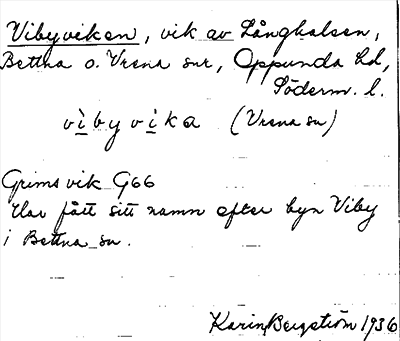 Vibyviken, vik av Långhalsen,
Bettna o. Vrena snr, Oppunda hd,
Söderm. l.
vìbyvìka (Vrena sn)
Grimsvik G66
Har fått sitt namn efter byn Viby
i Bettna sn.
Karin Bergström 1936